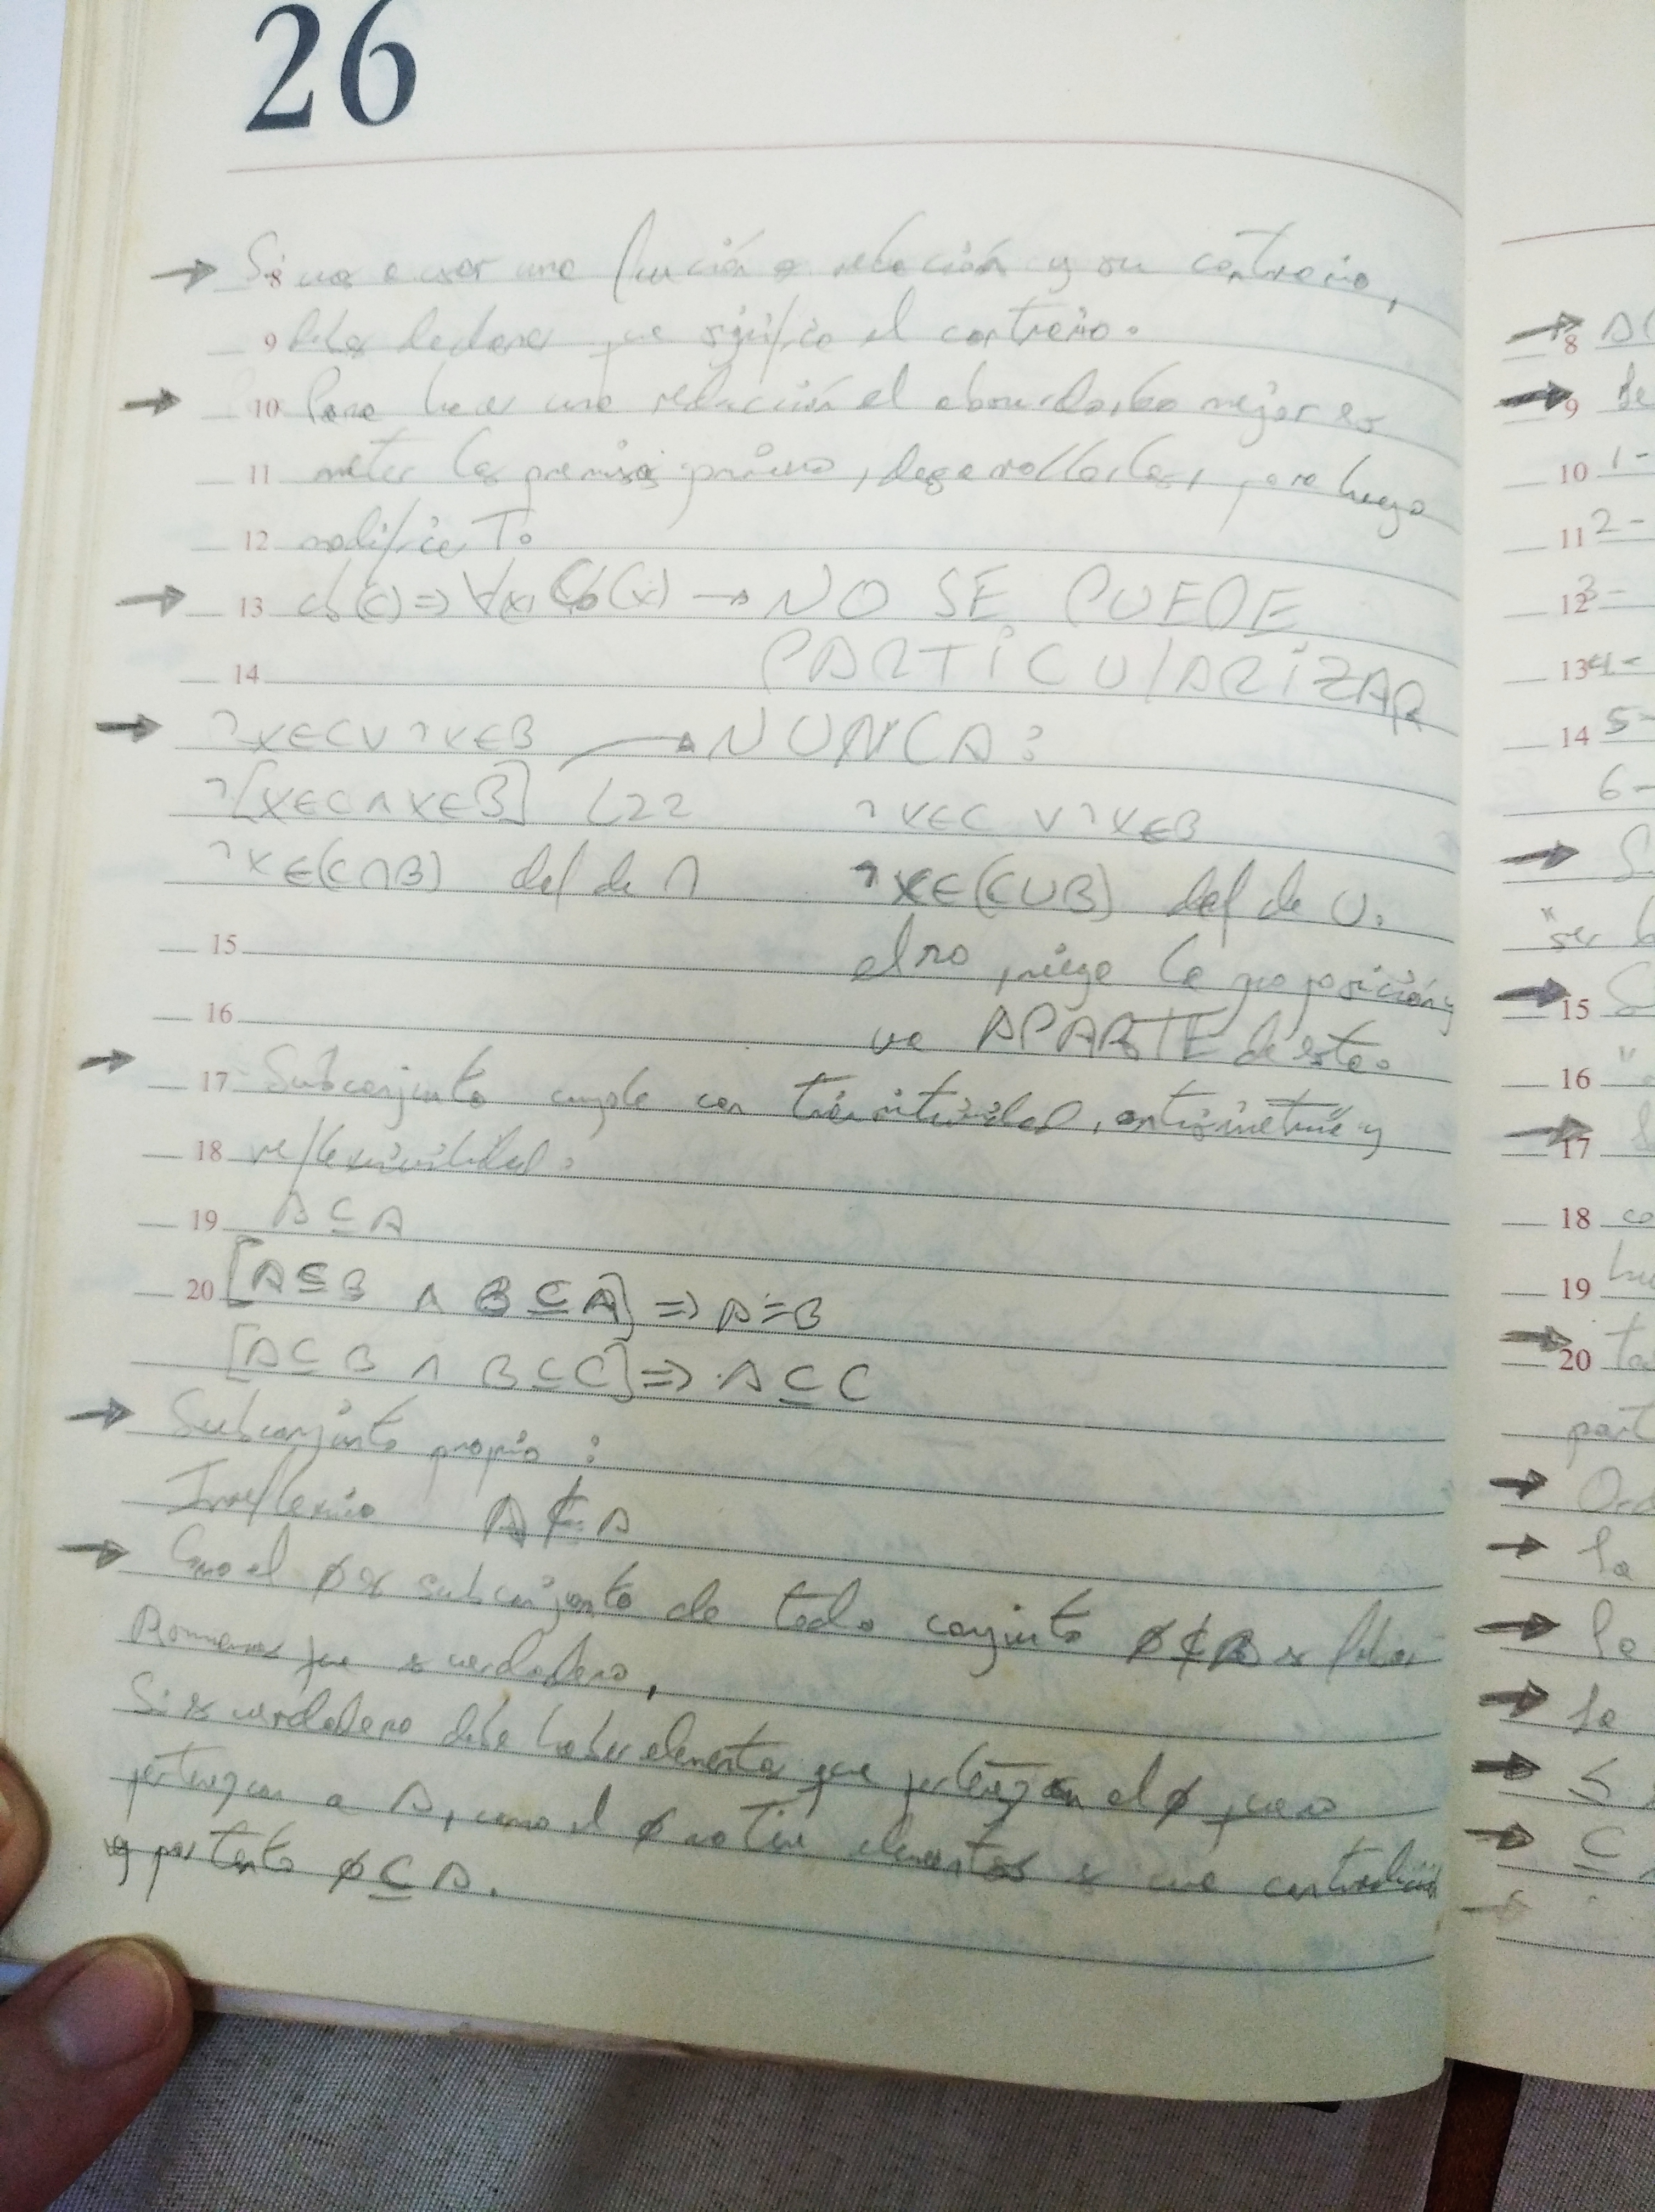 26
→ 8 Si vas a usar una función o relación y su contrario,
9 debes declarar que significa el contrario.
→ 10 Para hacer una reducción al absurdo, lo mejor es
11 meter las premisas primero, desarrollarlas, para luego
12 modificar T.
→ 13 Cb(c) ⇒ ∀x, Cb(x) → NO SE PUEDE
14 PARTICULARIZAR
→ ¬x∈C∨¬x∈B → NUNCA:
¬[x∈C∧x∈B] L22 ¬x∈C ∨¬x∈B
¬x∈(C∩B) def de ∩ ¬x∈(C∪B) def de ∪.
15 el no, niega la proposición y
16 va APARTE de esta.
→ 17 Subconjunto cumple con transitividad, antisimetría y
18 reflexividad:
19 A⊆A
20 [A⊆B ∧ B⊆A] ⇒ A=B
[A⊆B ∧ B⊆C] ⇒ A⊆C
→ Subconjunto propio:
Irreflexivo A⊄A
→ Como el ∅ es subconjunto de todo conjunto ∅⊄B es falso.
que es verdadero,
Si es verdadero debe haber elementos que pertenezcan al ∅, pero
pertenezcan a A, como el ∅ no tiene elementos es una contradicción
y por tanto ∅⊆A.
→ 8
→ 9
10 1-
11 2-
12 3-
13 4-
14 5-
6-
→
"ser
→ 15
16
→ 17
18
19
→ 20
→
→
→
→
→
→ ⊆